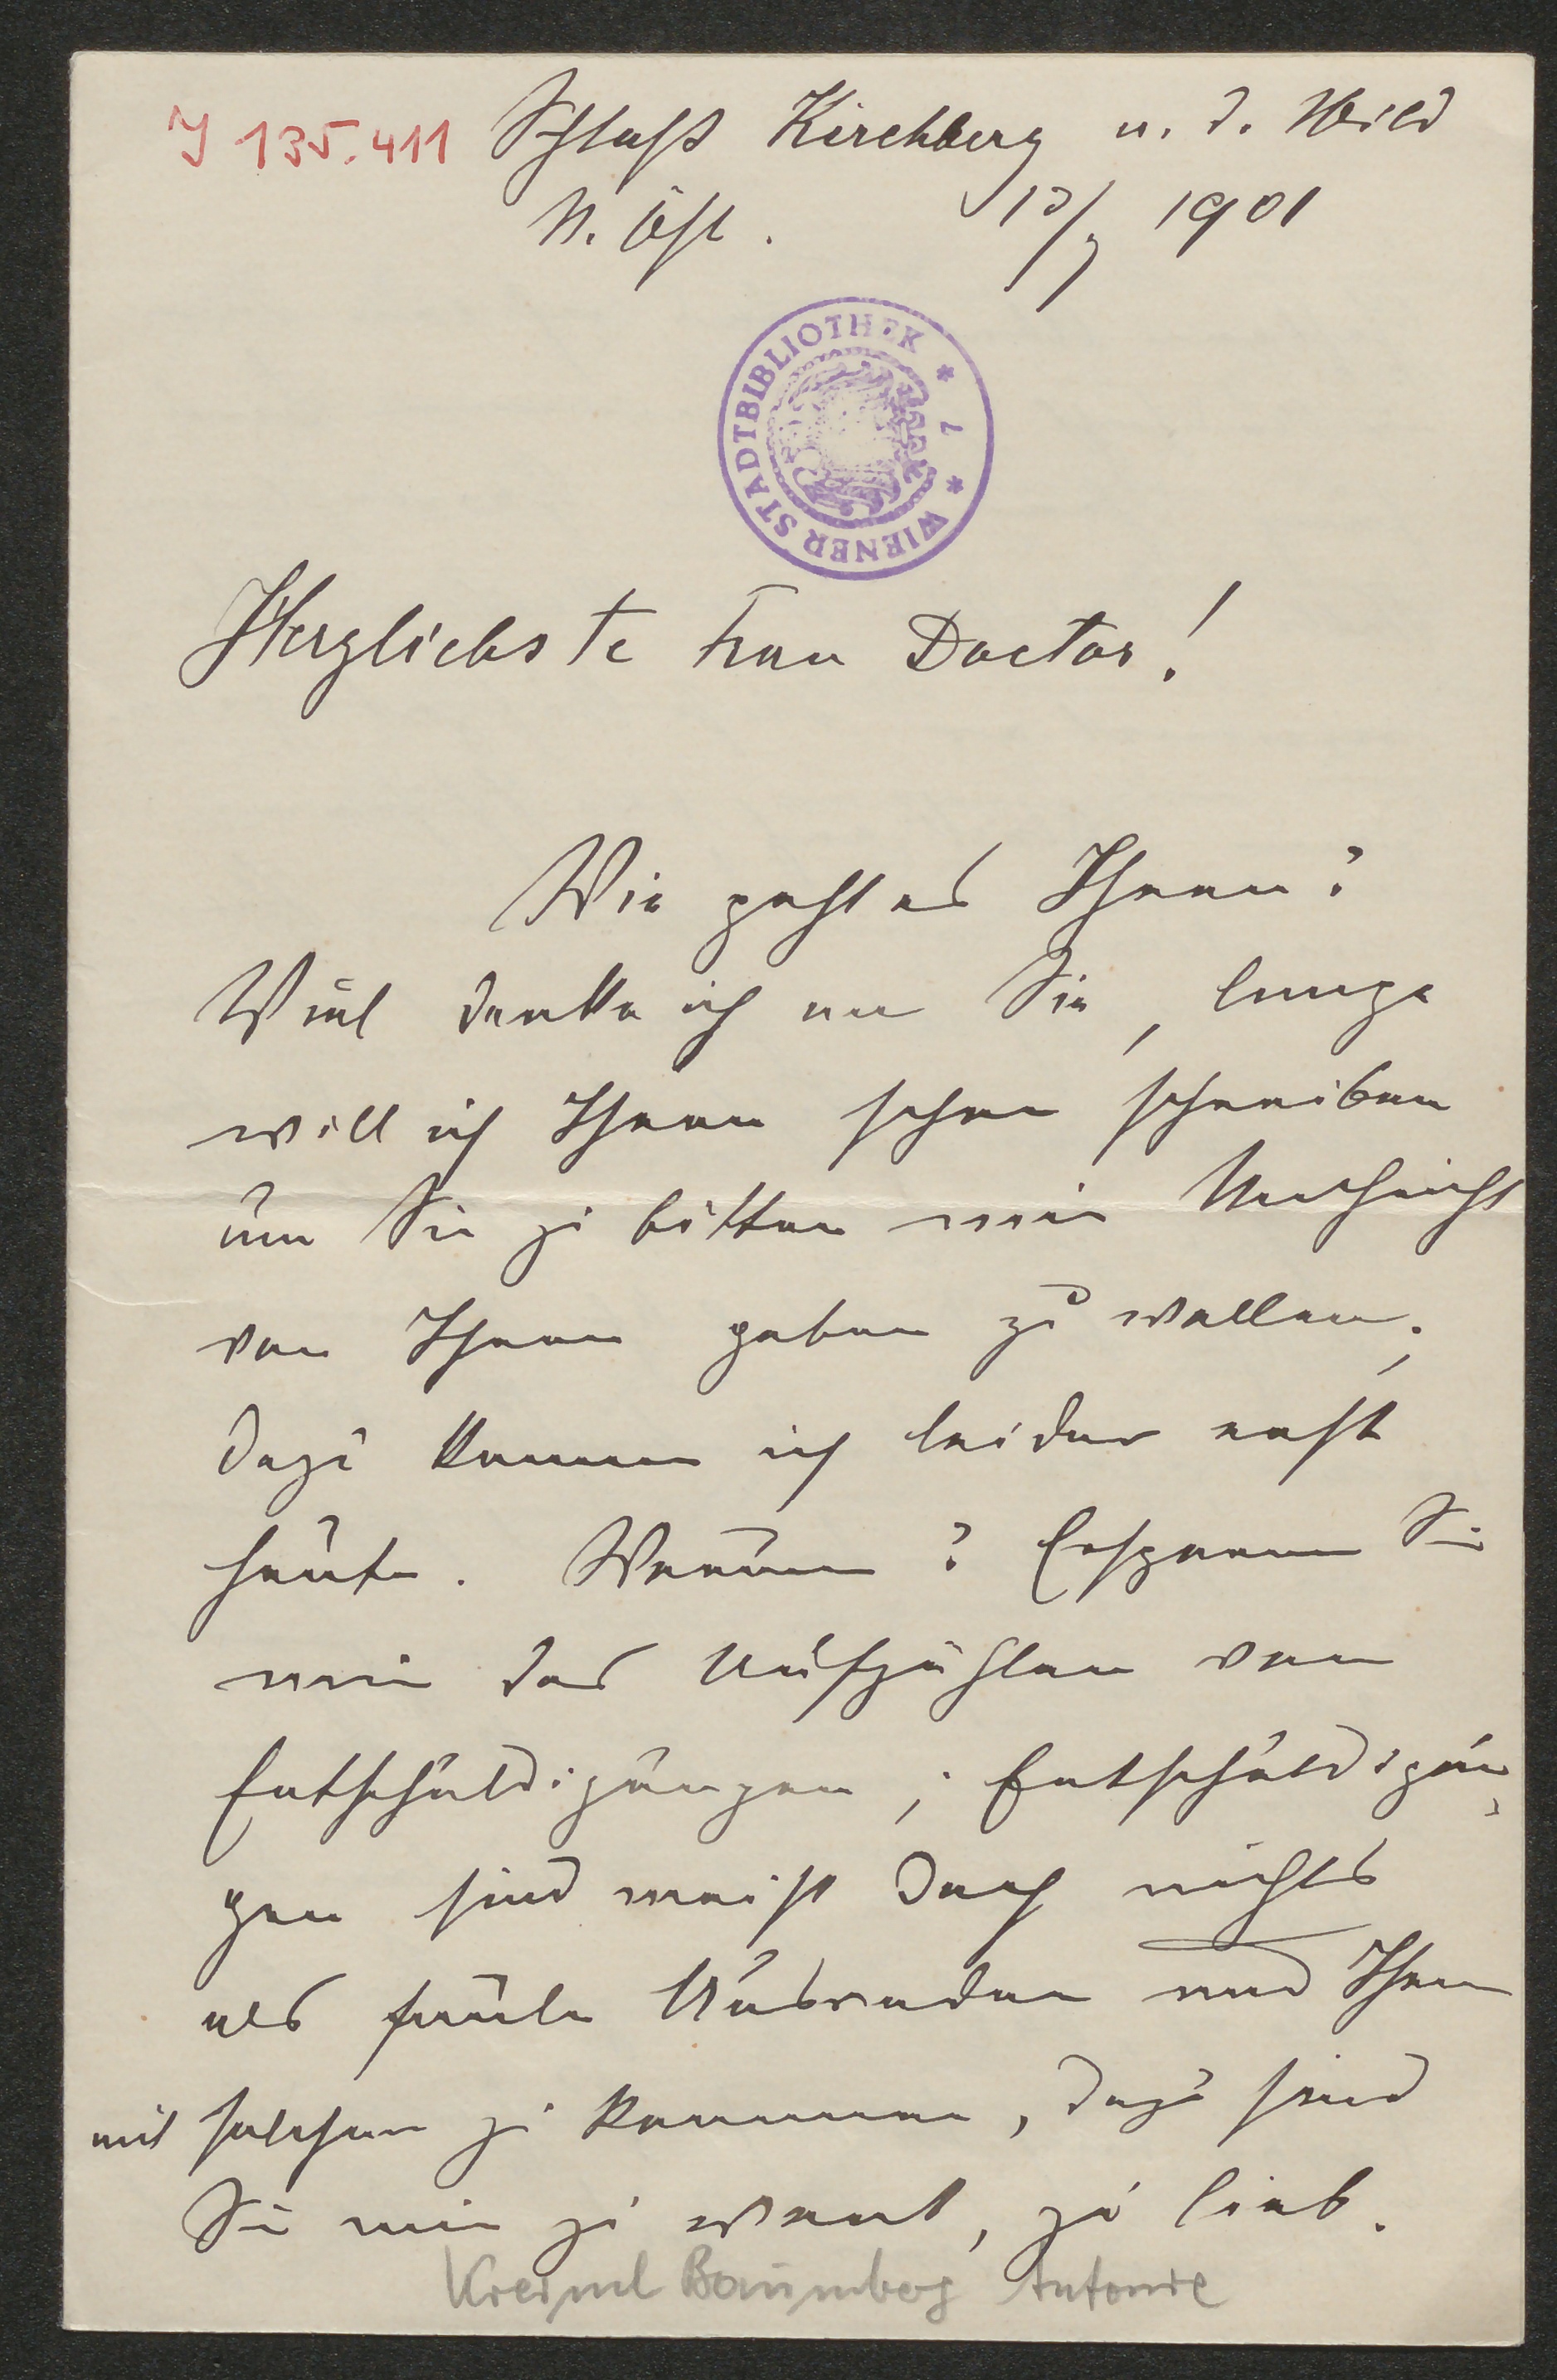 J 135.411 Schloß Kirchberg a. d. Wild
N. Öst. 1901
WIENER STADTBIBLIOTHEK * 7 *
Herzlichste Frau Doctor!
Wie geht es Ihnen?
Viel denke ich an Sie, lange
will ich Ihnen schon schreiben
um Sie zu bitten mir Nachricht
von Ihnen geben zu wollen,
dazu komme ich leider erst
heute. Warum? Ersparen Sie
mir das Aufzählen von
Entschuldigungen; Entschuldigun-
gen sind meist doch nichts
als faule Ausreden und Ihnen
mit solchen zu kommen, dazu sind
Sie mir zu wert, zu lieb.
Kreiml Baumberg Antonie